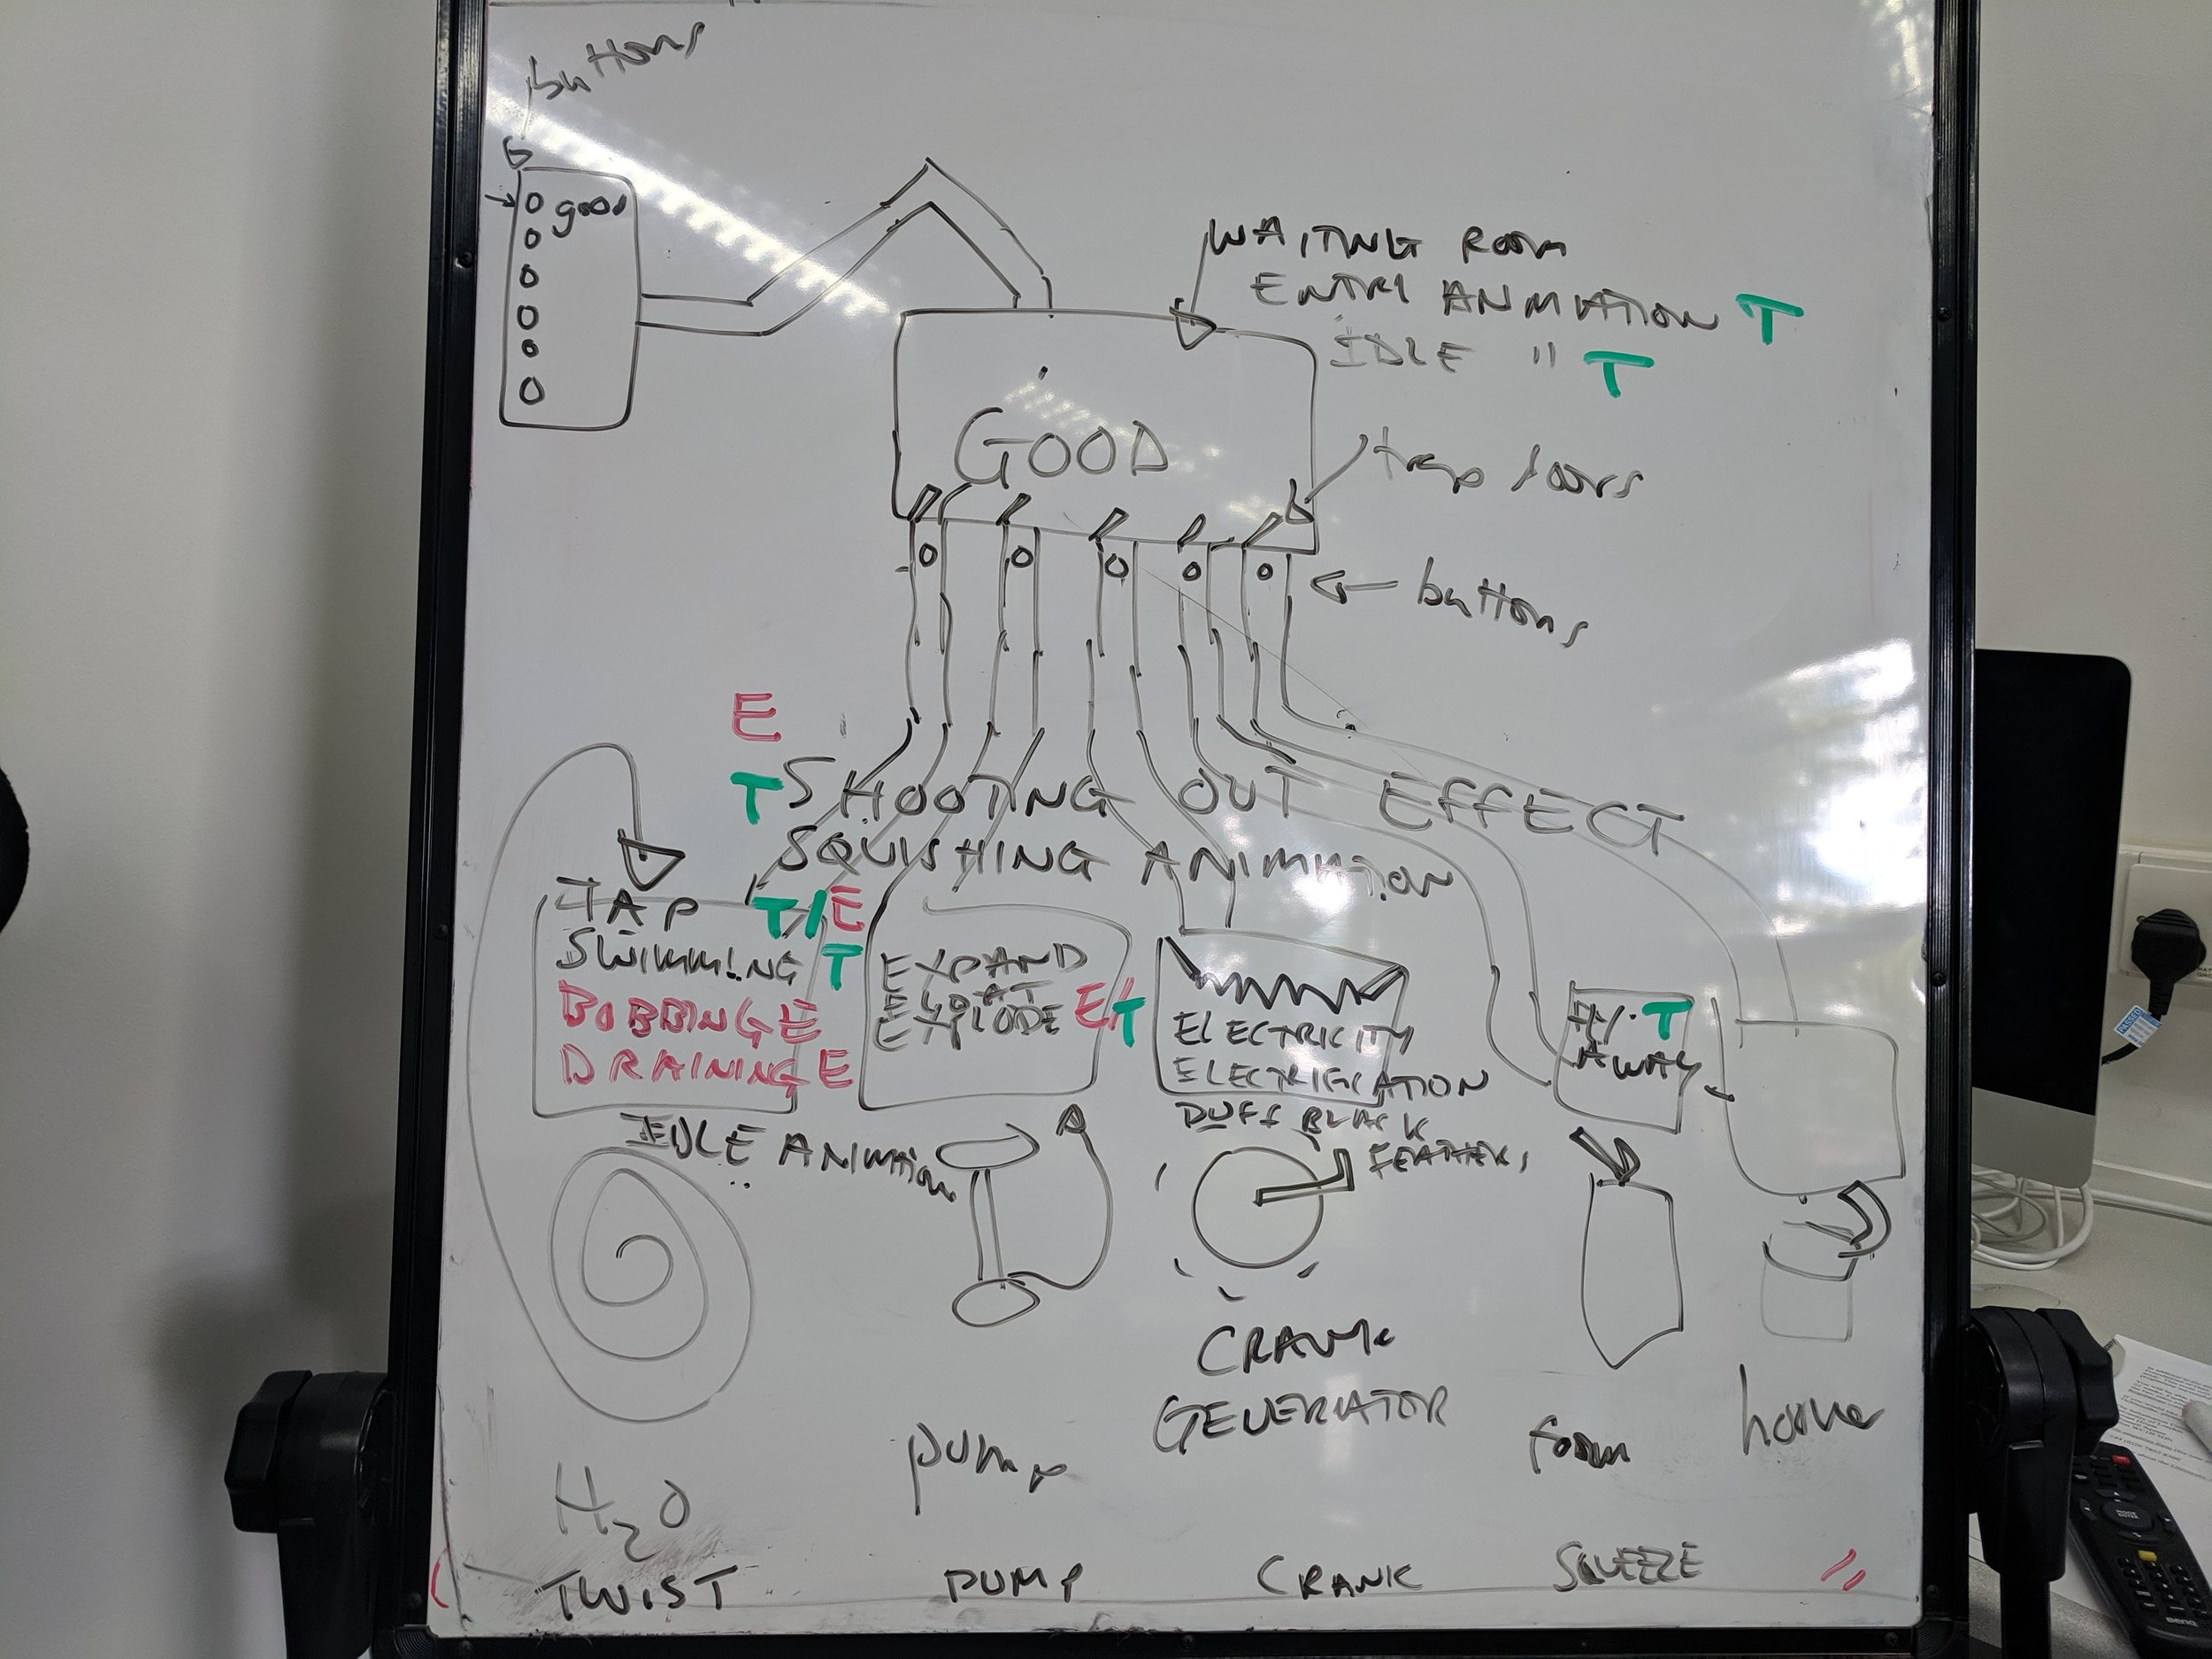 buttons
good
WAITING ROOM
ENTRY ANIMATION T
IDLE " T
GOOD
trap doors
buttons
E
T SHOOTING OUT EFFECT
SQUISHING ANIMATION
TAP T/E
SWIMMING T
BOBBING E
DRAINING E
EXPAND
FLOAT
EXPLODE E/T
ELECTRICITY
ELECTRIFICATION
PUFF BLACK
FEATHERS
FLY T
AWAY
IDLE ANIMATION
CRANK
GENERATOR
H2O
pump
foam
TWIST
PUMP
CRANK
SQUEEZE